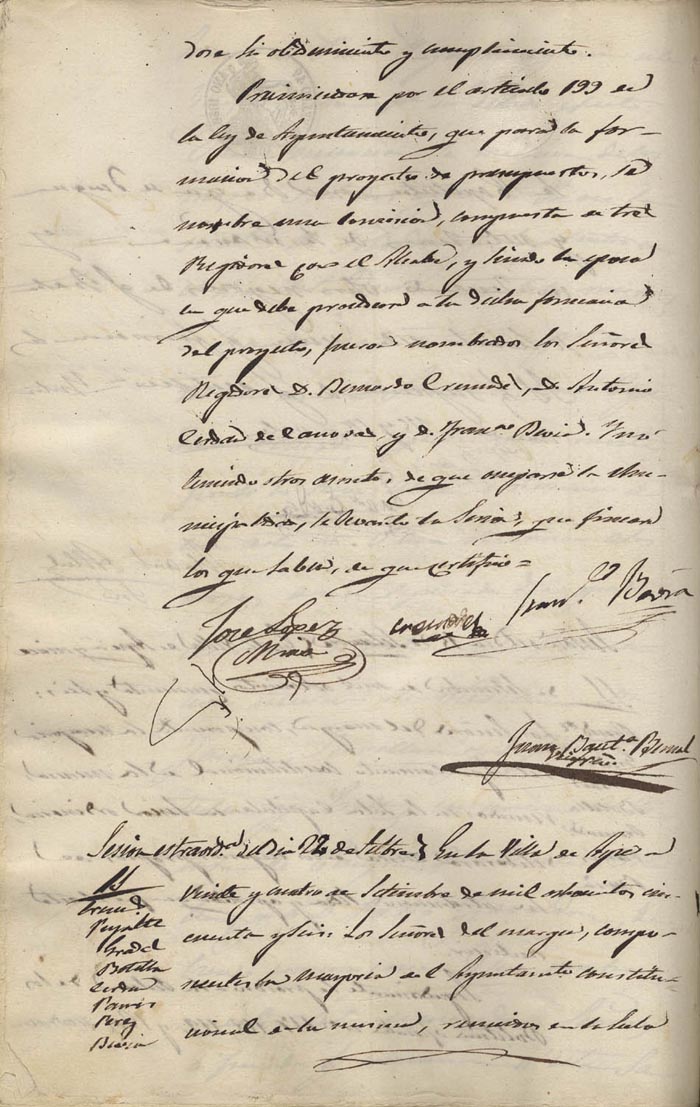 dose su obedecimiento y cumplimiento.
Previniendose por el articulo 199 de
la ley de Ayuntamientos, que para la for-
macion del proyecto de presupuestos, se
nombre una comision, compuesta de tres
Regidores con el Alcalde, y siendo la epoca
en que debe procederse a la dicha formacion
del proyecto, fueron nombrados los Señores
Regidores D. Bernardo Cremades, D. Antonio
Cerdan de Canovas, y D. Fran.co Bevia. Y no
teniendo otros asuntos, de que ocuparse la Mu-
nicipalidad, se levantó la Sesion, que firman
los que saben, de que certifico=
Jose Lopez
Mira
Cremades
Fran.co Bevia
Juan Baut.a Bernal
Sesion estraord.a del dia 22 de Setbre.
SS
Cremd.s
Piñalte
Gradel
Botella
Cerdan
Perez
Bevia
En la Villa de Aspe a
veinte y cuatro de Setiembre de mil ochocientos cin-
cuenta y seis: Los Señores del margen, compo-
nentes la mayoria del Ayuntam.to constitu-
cional de la misma, reunidos en la Sala